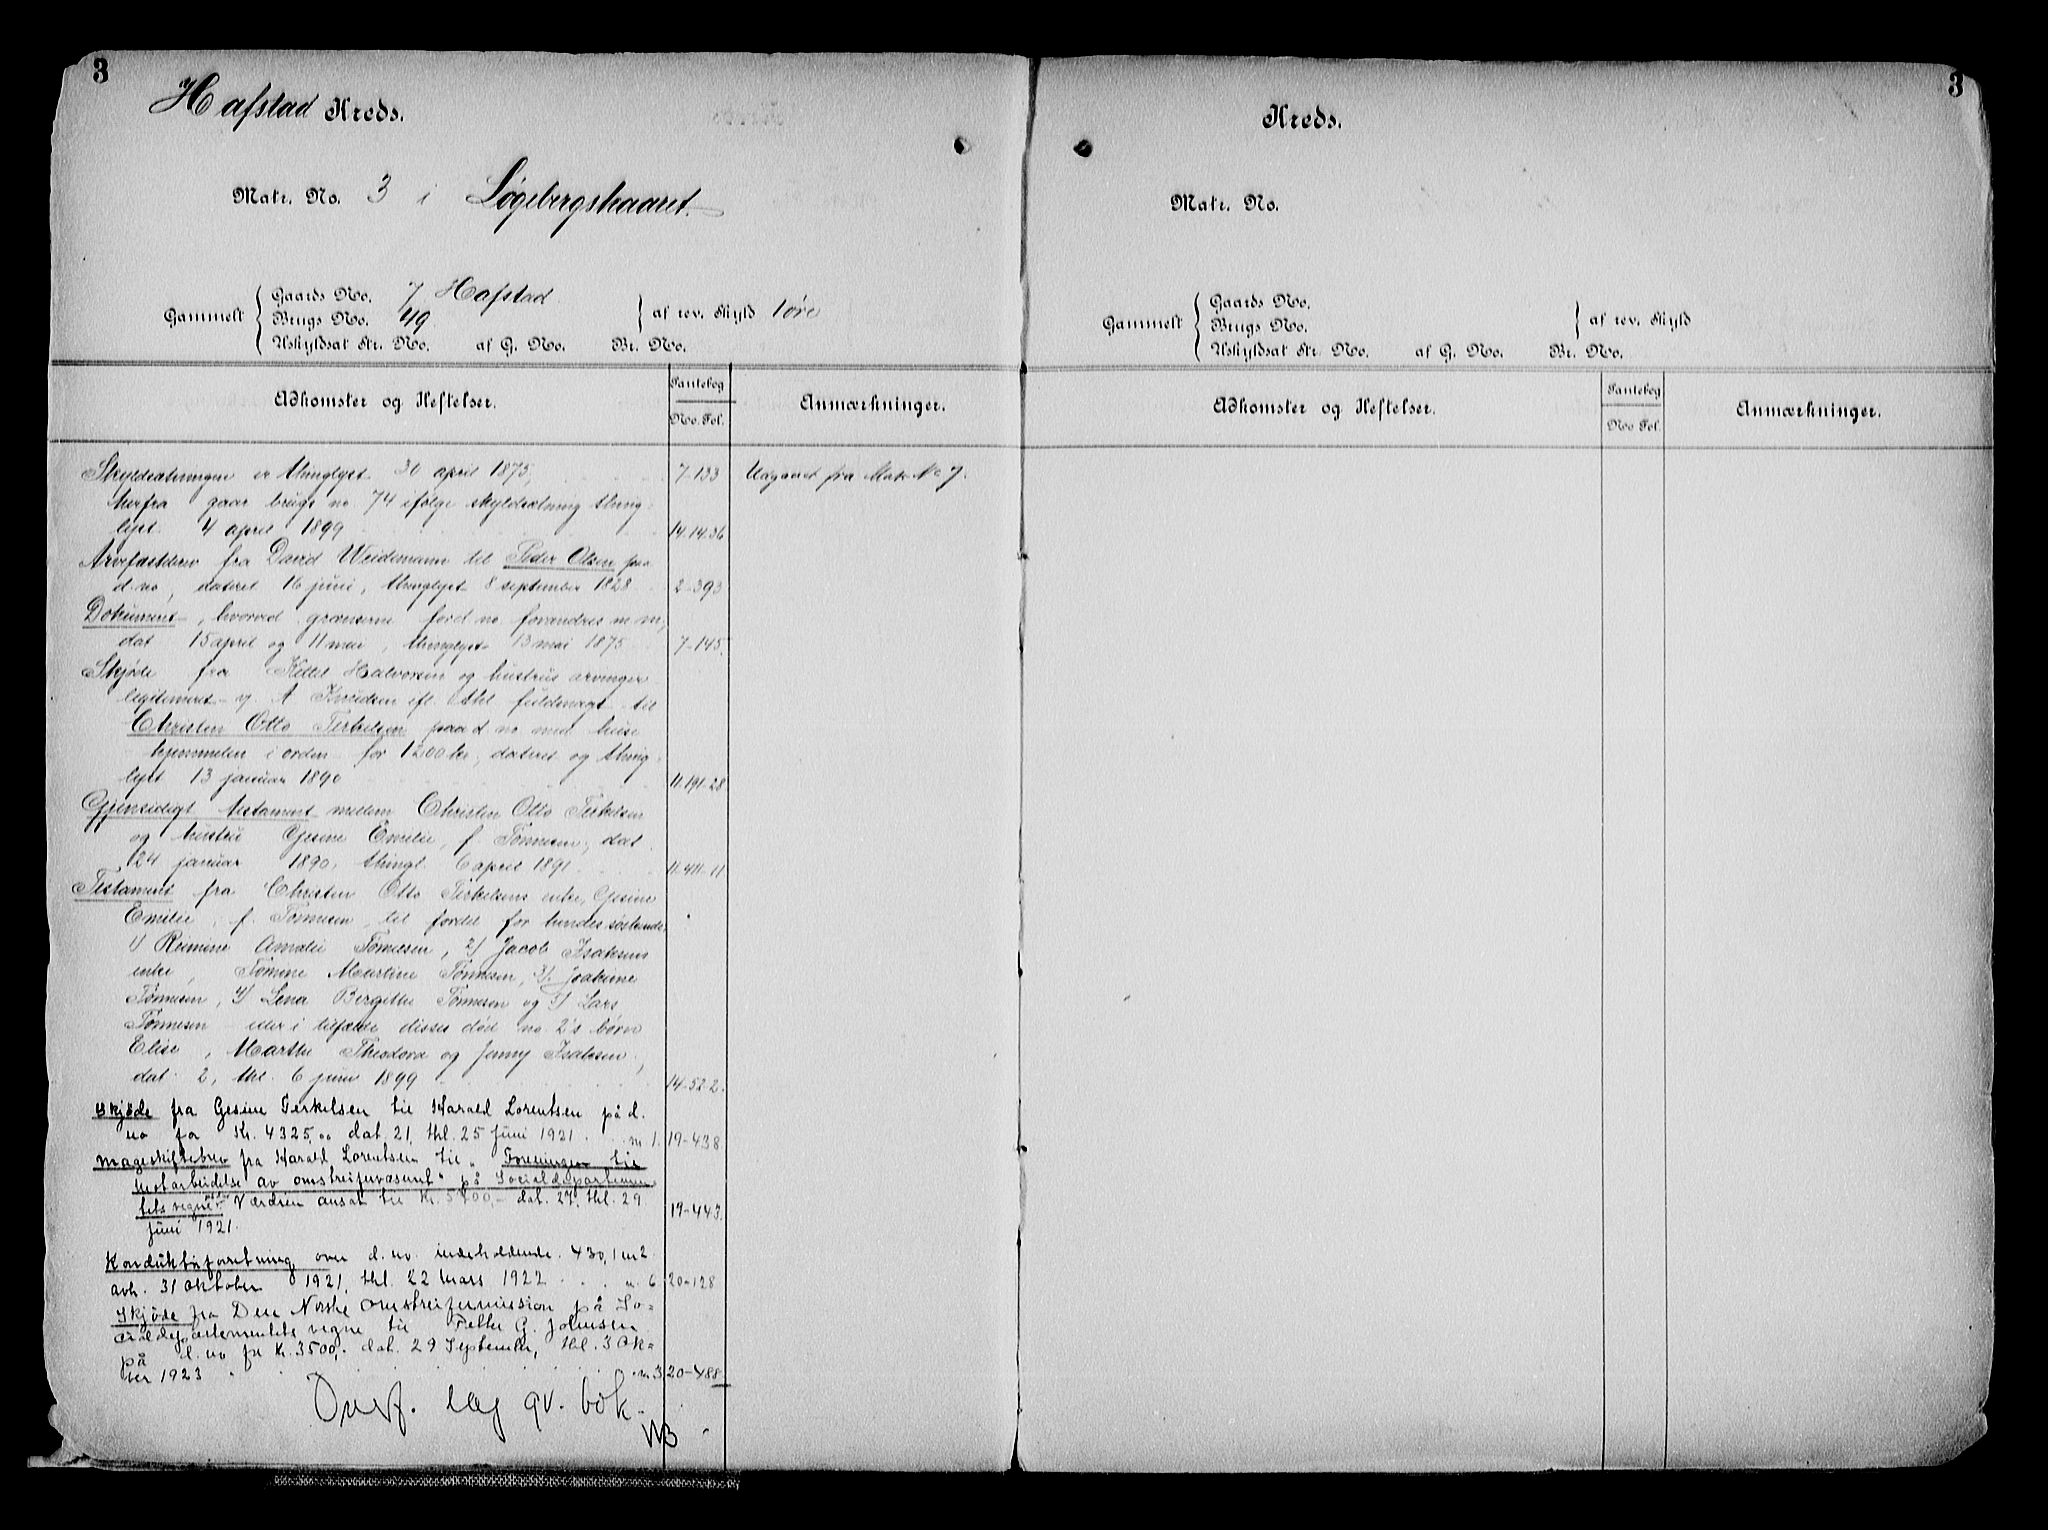 3
Hafstad Kreds.
Matr. No. 3 i Løgebergskaaret.
Gammelt
Gaards No. 7 Hafstad
Brugs No. 49
Uskyldsat Str. No. af G. No. Br. No.
af rev. Skyld 1 øre
Adkomster og Heftelser.
Pantebog
No. Fol.
Anmærkninger.
Skyldsætningen er thinglyst 30 april 1875, 7-133 Udgaaet fra Matr No 7.
herfra gaar brugs no. 74 ifølge skyldsætning thing-
lyst 4 april 1899 14.1436
Arvefæstebrev fra David Weidemann til Peder Olsen paa
d. no, dateret 16 juni, thinglyst 8 september 1828 2-393
Dokument, hvorved grænserne for d no. forandres m m,
dat 15 april og 11 mai, thinglyst 13 mai 1875 7-145.
Skjøde fra Kittel Halvorsen og hustrus arvinger
legitimeret v/ A. Knudsen ifl. thl fuldmagt til
Christen Otto Terkelsen paa d no med huse
hjemmelen i orden for 1200 kr, dateret og thing-
lyst 13 januar 1890 11.191-28
Gjensidigt testament mellem Christen Otto Terkelsen
og hustru Gesine Emilie, f. Tønnesen, dat.
24 januar 1890, thingl 6 april 1891 11-411-11
Testament fra Christen Otto Terkelsens enke, Gesine
Emilie, f. Tønnesen, til fordel for hendes søskende,
1) Reimine Amalie Tønnesen, 2/ Jacob Isaksens
enke, Tomine Martine Tønnesen, 3/ Joakime
Tønnesen, 4/ Lena Birgitte Tønnesen og 5/ Lars
Tønnesen eller i tilfælde disses død no. 2's børn
Elise, Marthe Theodora og Jenny Isaksen,
dat. 2, thl. 6 juni 1899 14-52-2.
Skjøde fra Gesine Terkelsen til Harald Lorentsen på d.
no for Kr. 4325,00 dat. 21, thl. 25 Juni 1921 . . m 1. 19-438
Mageskiftebrev fra Harald Lorentsen til "Foreningen til
Motarbeidelse av omstreifervæsenet" på Socialdepartemen-
tets vegne Værdien ansat til Kr. 5400,- dat. 27, thl. 29
Juni 1921. 19-443.
Konduktørforretning over d. no. indeholdende 430,1 m2
avh. 31 Oktober 1921, thl. 22 Mars 1922 . . . n. 6 20-128
Skjøde fra Den Norske Omstreifermission på So-
cialdepartementets vegne til Petter G. Johnsen
på d. no for Kr. 3500,- dat. 29 September, thl. 3 Ok-
ber 1923 . . . n. 3 20-488
Overf. lag gv. bok.
3
Kreds.
Matr. No.
Gammelt
Gaards No.
Brugs No.
Uskyldsat Str. No. af G. No. Br. No.
af rev. Skyld
Adkomster og Heftelser.
Pantebog
No Fol.
Anmærkninger.